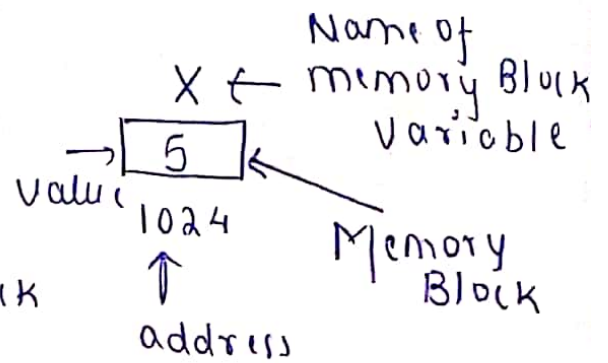 Name of
X ← memory Block
Variable
→ 5
Value
1024
Memory
Block
ck
↑
address